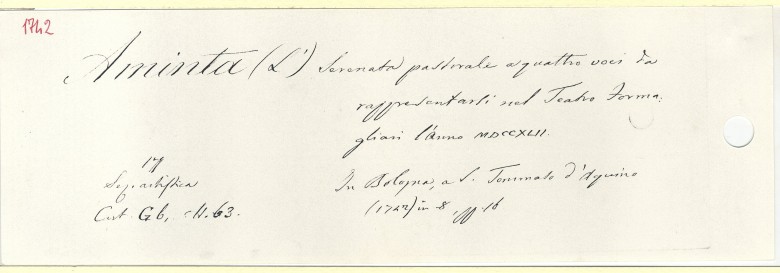 1742
Aminta (L') Serenata pastorale a quattro voci da
rappresentarsi nel Teatro Forma-
gliari l'anno MDCCXLII.
17
Scz. artistica
Cart. Gb, N. 63.
In Bologna, a S. Tommaso d'Aquino
(1742) in-8, pp. 16